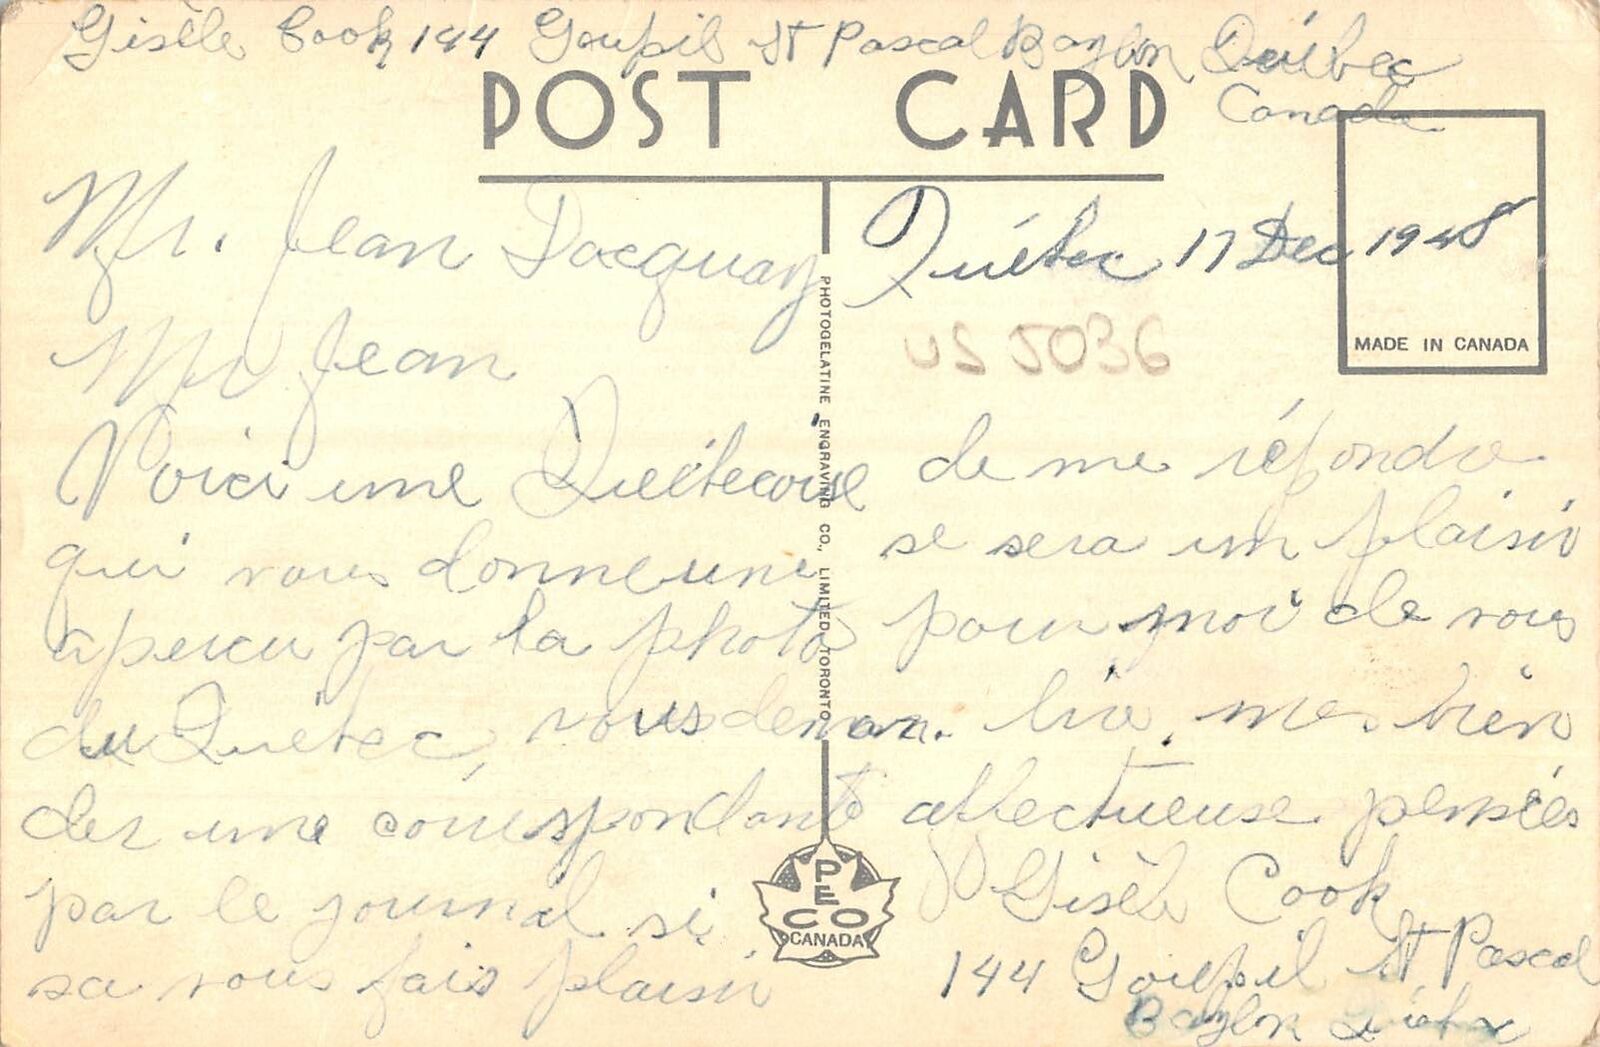 Gisèle Cook 144 Goupil St Pascal Baylon Québec
Canada
POST CARD
Québec 17 Dec 1948
MADE IN CANADA
US 5036
Mr. Jean Dacquay
Mr Jean
Voici une Québecoise
qui vous donne une
apercu par la photo
du Québec, vous deman.
der une correspondante
par le journal si
sa vous fais plaisir
de me répondre
se sera un plaisir
pour moi de vous
lire, mes bien
affectueuse pensées
Gisèle Cook
144 Goupil St Pascal
Baylon Québec
PHOTOGELATINE ENGRAVING CO., LIMITED, TORONTO
PECO
CANADA